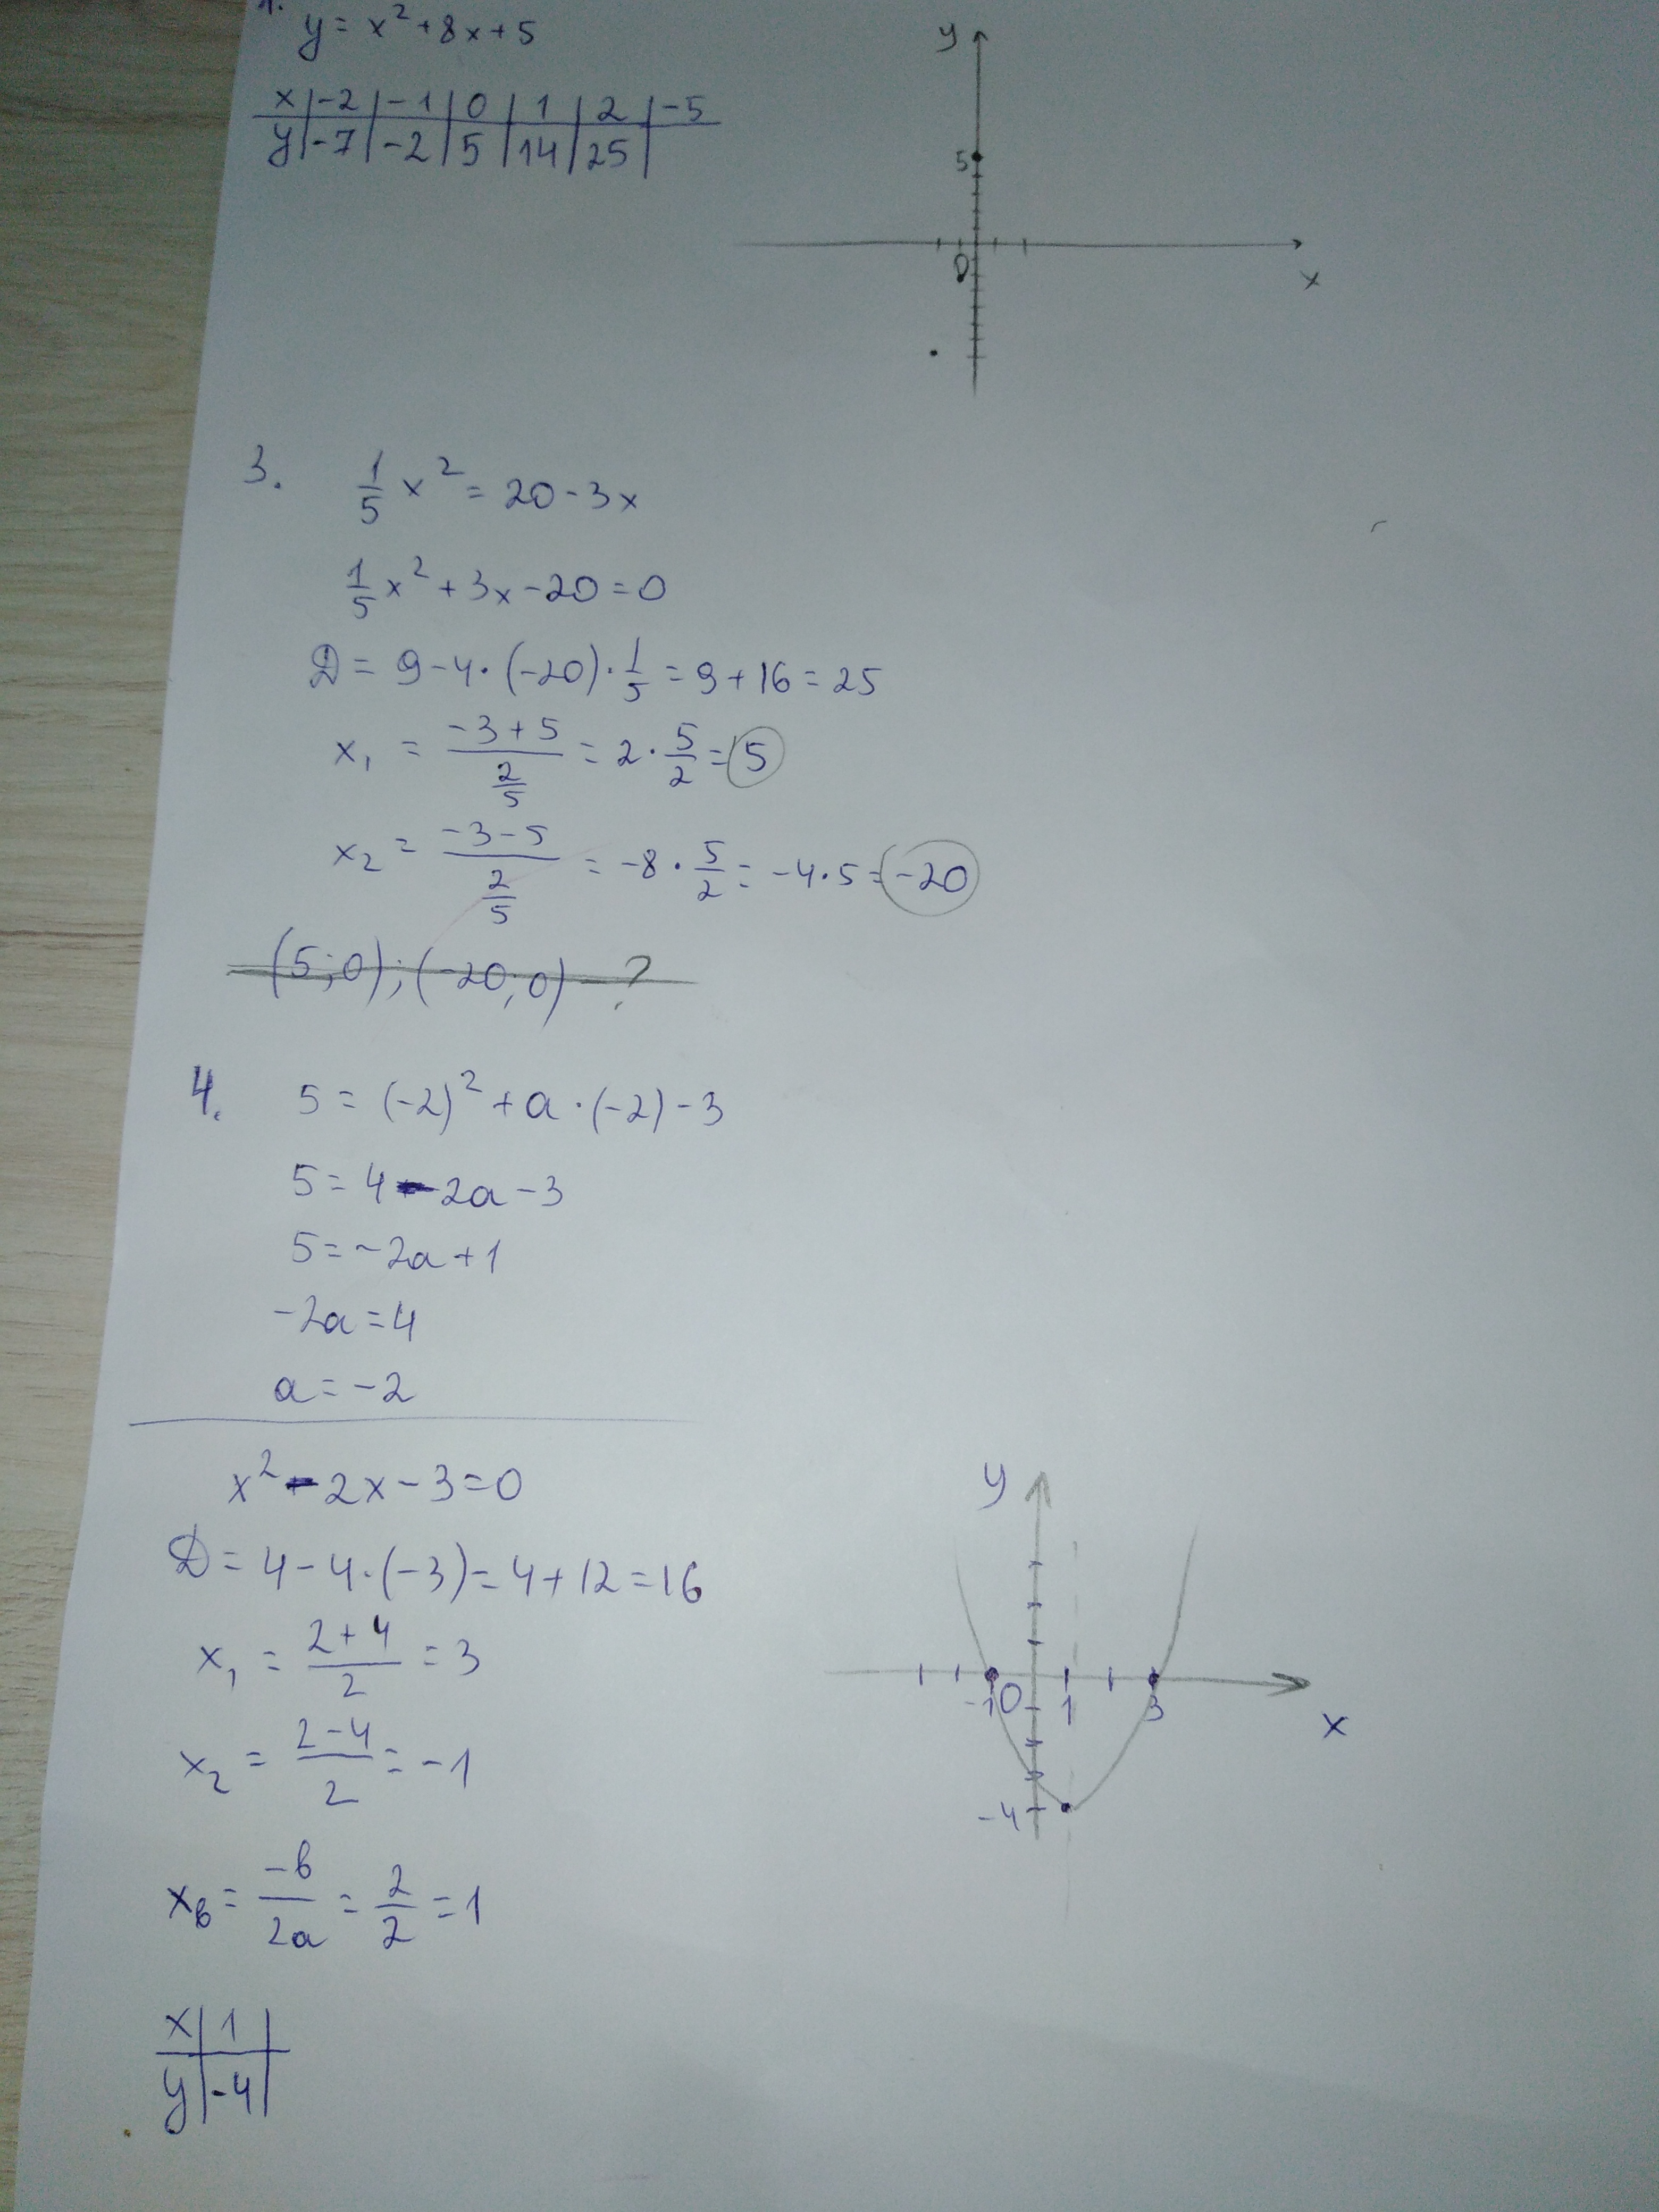 1.
y = x² + 8x + 5
x | -2 | -1 | 0 | 1 | 2 | -5
y | -7 | -2 | 5 | 14 | 25 |
y
5
0
x
3. 1/5 x² = 20 - 3x
1/5 x² + 3x - 20 = 0
D = 9 - 4 · (-20) · 1/5 = 9 + 16 = 25
x₁ = (-3 + 5)/(2/5) = 2 · 5/2 = 5
x₂ = (-3 - 5)/(2/5) = -8 · 5/2 = -4 · 5 = -20
(5; 0); (-20; 0) - ?
4. 5 = (-2)² + a · (-2) - 3
5 = 4 - 2a - 3
5 = -2a + 1
-2a = 4
a = -2
x² - 2x - 3 = 0
D = 4 - 4 · (-3) = 4 + 12 = 16
x₁ = (2 + 4)/2 = 3
x₂ = (2 - 4)/2 = -1
xв = -b/2a = 2/2 = 1
x | 1 |
y | -4 |
y
-1 0 1 3
x
-4